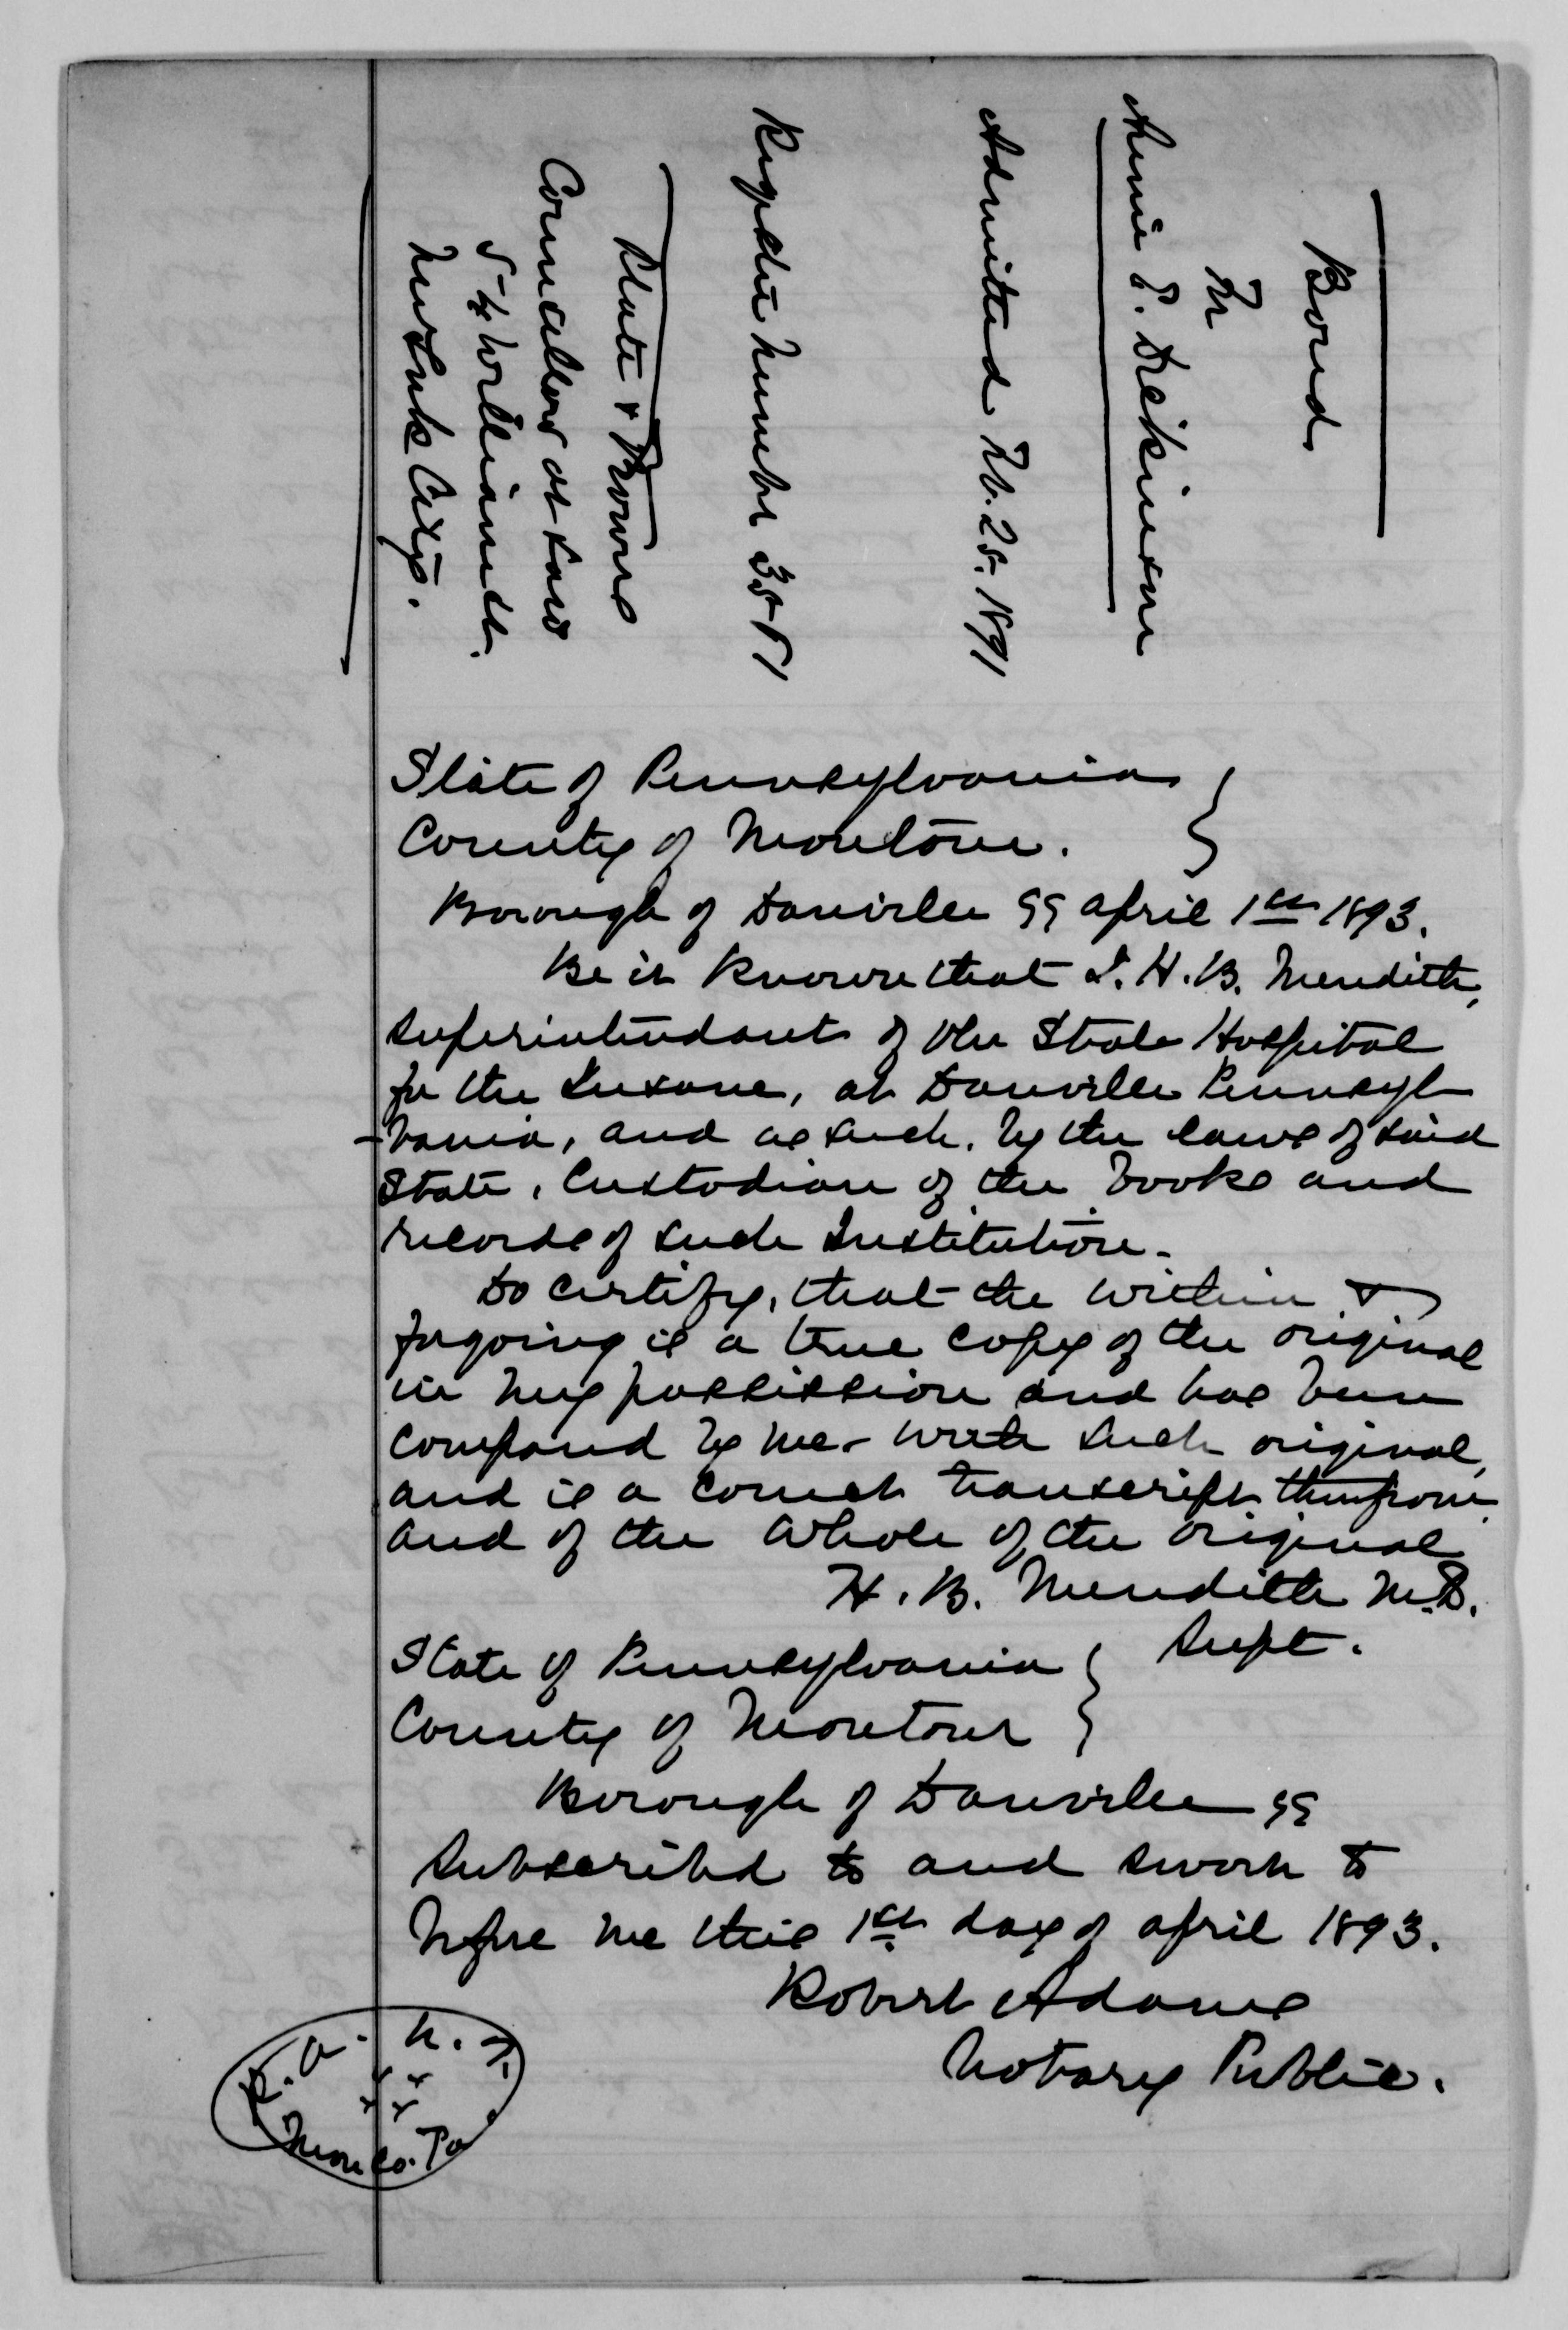 Bond
For
Annie E. Dickinson
Admitted Feb. 25. 1891
Register Number 3581
Plate & Browne
Councellors at Law
54 William St.
New York City.
State of Pennsylvania
County of Montour.
Borough of Danville SS April 1st 1893.
Be it Known that I. H. B. Meredith,
Superintendant of the State Hospital
for the Insane, at Danville Pennsyl-
-vania, and as such, by the laws of said
State, Custodian of the books and
records of such Institution-
Do certify, that the within &
forgoing is a true copy of the original
in my possession and has been
compared by me- with such original,
and is a correct transcript therefrom,
and of the whole of the original
H. B. Meredith M.D.
Supt.
State of Pennsylvania
County of Montour
Borough of Danville SS
Subscribed to and sworn to
before me this 1st day of April 1893.
Robert Adams
Notary Public.
R. A. N. P.
Mon Co. Pa